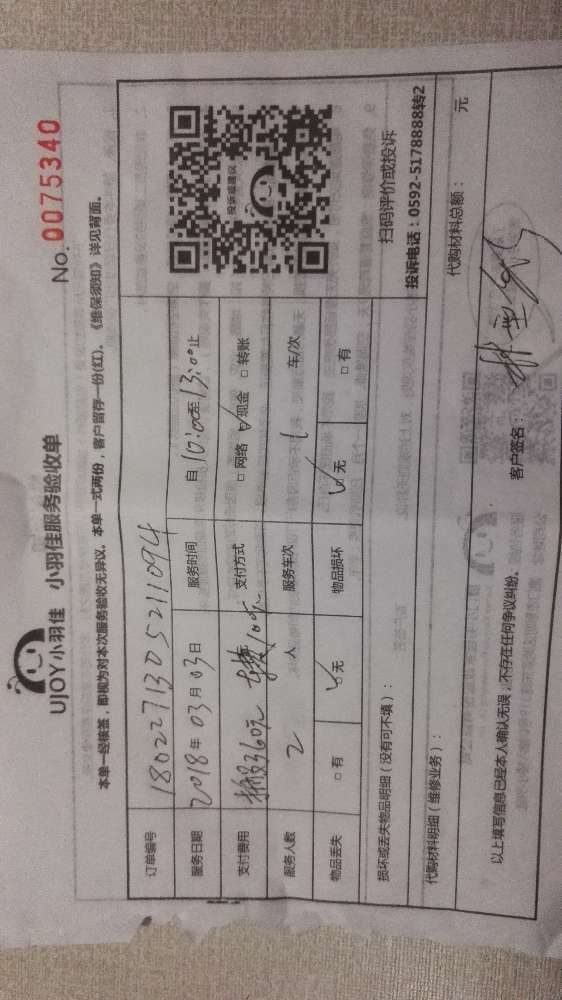 UJOY小羽佳 小羽佳服务验收单
No. 0075340
本单一经核签，即视为对本次服务验收无异议，本单一式两份，客户留存一份(红)。《维保须知》详见背面。
订单编号 1802271305211094
服务日期 2018年03月03日 服务时间 自10:00至13:00止
支付费用 搬服360元 10元 支付方式 □网络 ☑现金 □转账
服务人数 2 人 服务车次 1 车/次
物品丢失 □有 ☑无 物品损坏 ☑无 □有
投诉或建议
扫码评价或投诉
投诉电话：0592-5178888转2
损坏或丢失物品明细（没有可不填）：
代购材料明细（维修业务）： 代购材料总额： 元
以上填写信息已经本人确认无误，不存在任何争议纠纷。 客户签名：